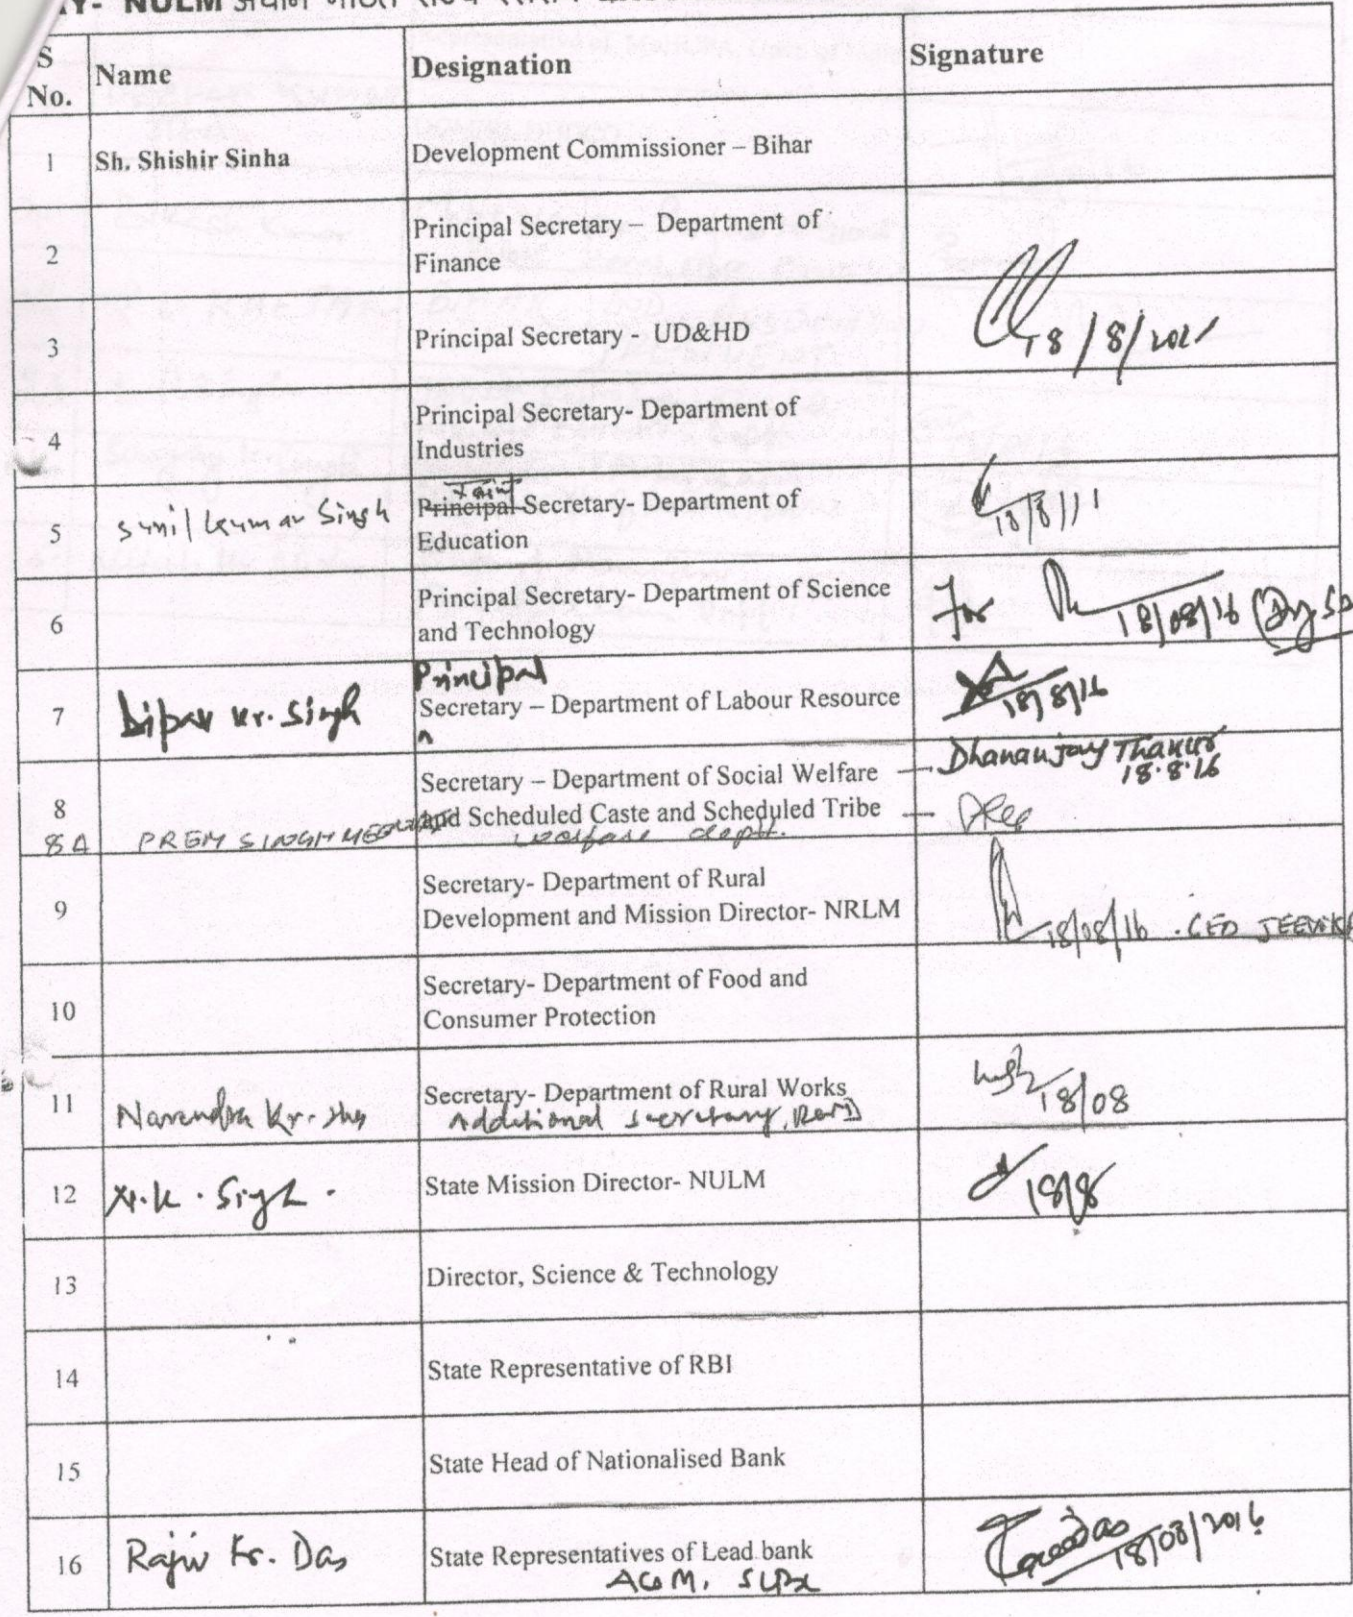 NULM
S No. Name Designation Signature
1 Sh. Shishir Sinha Development Commissioner – Bihar
2 Principal Secretary – Department of
Finance
3 Principal Secretary - UD&HD 18/8/2016
4 Principal Secretary- Department of
Industries
Joint
5 Sunil Kumar Singh Principal Secretary- Department of 18/8/11
Education
6 Principal Secretary- Department of Science For 18/08/16
and Technology
Principal
7 Dipak Kr. Singh Secretary – Department of Labour Resource 18/8/16
8 Secretary – Department of Social Welfare — Dhananjay Thakur
18.8.16
and Scheduled Caste and Scheduled Tribe —
8A PREM SINGH MEENA welfare dept.
9 Secretary- Department of Rural
Development and Mission Director- NRLM 18/08/16 . CEO JEEVIKA
10 Secretary- Department of Food and
Consumer Protection
11 Secretary- Department of Rural Works 18/08
Narendra Kr. Additional Secretary,
12 Singh. State Mission Director- NULM 18/8
13 Director, Science & Technology
14 State Representative of RBI
15 State Head of Nationalised Bank
16 Rajiv Kr. Das State Representatives of Lead bank 18/08/2016
AGM, SLBC